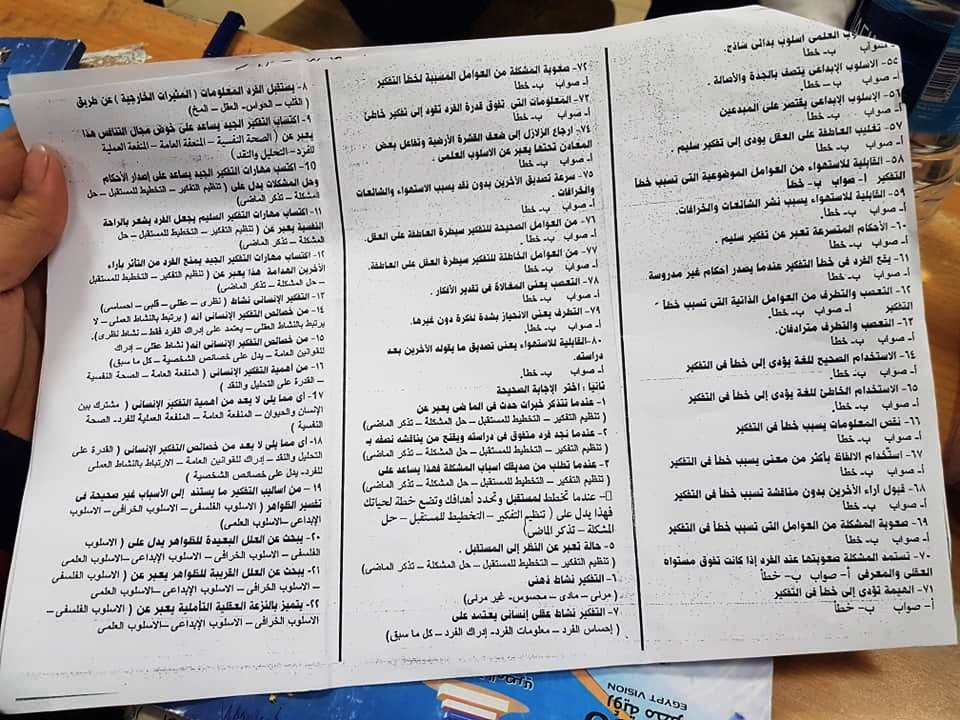 العلمى اسلوب بدائى ساذج.
صواب ب- خطأ
٥٥- الاسلوب الإبداعى يتصف بالجدة والأصالة.
أ- صواب ب- خطأ.
٥٦- الإسلوب الإبداعى يقتصر على المبدعين
أ- صواب ب- خطأ.
٥٧- تغليب العاطفة على العقل يودى إلى تفكير سليم.
أ- صواب ب- خطأ.
٥٨- القابلية للاستهواء من العوامل الموضوعية التى تسبب خطأ
التفكير أ- صواب ب- خطأ
٥٩- القابلية للاستهواء يسبب نشر الشائعات والخرافات.
أ- صواب ب- خطأ.
٦٠- الأحكام المتسرعة تعبر عن تفكير سليم.
أ- صواب ب- خطأ.
٦١- يقع الفرد فى خطأ التفكير عندما يصدر أحكام غير مدروسة
أ- صواب ب- خطأ.
٦٢- التعصب والتطرف من العوامل الذاتية التى تسبب خطأ
التفكير أ- صواب ب- خطأ.
٦٣- التعصب والتطرف مترادفان.
أ- صواب ب- خطأ.
٦٤- الاستخدام الصحيح للغة يؤدى إلى خطأ فى التفكير
أ- صواب ب- خطأ.
٦٥- الاستخدام الخاطئ للغة يؤدى إلى خطأ فى التفكير
أ- صواب ب- خطأ.
٦٦- نقص المعلومات يسبب خطأ فى التفكير
أ- صواب ب- خطأ
٦٧- استخدام الالفاظ بأكثر من معنى يسبب خطأ فى التفكير
أ- صواب ب- خطأ
٦٨- قبول آراء الأخرين بدون مناقشة تسبب خطأ فى التفكير
أ- صواب ب- خطأ
٦٩- صعوبة المشكلة من العوامل التى تسبب خطأ فى التفكير
أ- صواب ب- خطأ
٧٠- تستمد المشكلة صعوبتها عند الفرد إذا كانت تفوق مستواه
العقلى والمعرفى أ- صواب ب- خطأ
٧١- الهيمة تؤدى إلى خطأ فى التفكير
أ- صواب ب- خطأ
٧٢- صعوبة المشكلة من العوامل المسببة لخطأ التفكير
أ- صواب ب- خطأ
٧٣- المعلومات التى تفوق قدرة الفرد تقود إلى تفكير خاطئ
أ- صواب ب- خطأ
٧٤- ارجاع الزلازل إلى ضعف القشرة الأرضية وتفاعل بعض
المعادن تحتها يعبر عن الاسلوب العلمى.
أ- صواب ب- خطأ
٧٥- سرعة تصديق الأخرين بدون نقد يسبب الاستهواء والشائعات
والخرافات.
أ- صواب ب- خطأ.
٧٦- من العوامل الصحيحة للتفكير سيطرة العاطفة على العقل.
أ- صواب ب- خطأ.
٧٧- من العوامل الخاطئة للتفكير سيطرة العقل على العاطفة.
أ- صواب ب- خطأ.
٧٨- التعصب يعنى المغالاة فى تقدير الأفكار.
أ- صواب ب- خطأ.
٧٩- التطرف يعنى الانحياز بشدة لفكرة دون غيرها.
أ- صواب ب- خطأ.
٨٠- القابلية للاستهواء يعنى تصديق ما يقوله الأخرين بعد
دراسته.
أ- صواب ب- خطأ
ثانياً: اختر الإجابة الصحيحة
١- عندما تتذكر خبرات حدث فى الماضى يعبر عن
(تنظيم التفكير – التخطيط للمستقبل – حل المشكلة – تذكر الماضى)
٢- عندما نجد فرد متفوق فى دراسته ويقنع من يناقشه نصفه بـ
(تنظيم التفكير – التخطيط للمستقبل – حل المشكلة – تذكر الماضى)
٣- عندما تطلب من صديقك اسباب المشكلة فهذا يساعد على
(تنظيم التفكير – التخطيط للمستقبل – حل المشكلة – تذكر الماضى)
- عندما تخطط لمستقبل وتحدد أهدافك وتضع خطة لحياتك
فهذا يدل على (تنظيم التفكير – التخطيط للمستقبل – حل
المشكلة – تذكر الماضى)
٥- حالة تعبر عن النظر إلى المستقبل.
(تنظيم التفكير – التخطيط للمستقبل – حل المشكلة – تذكر الماضى)
٦- التفكير نشاط ذهنى
(مرئى – مادى – محسوس- غير مرئى)
٧- التفكير نشاط عقلى إنسانى يعتمد على
(إحساس الفرد – معلومات الفرد- إدراك الفرد – كل ما سبق)
٨- يستقبل الفرد المعلومات (المثيرات الخارجية) عن طريق
(القلب – الحواس- العقل – المخ)
٩- اكتساب التفكير الجيد يساعد على خوض مجال التنافس هذا
يعبر عن (الصحة النفسية – المنفعة العامة – المنفعة العملية
للفرد- التحليل والنقد)
١٠- اكتسب مهارات التفكير الجيد يساعد على إصدار الأحكام
وحل المشكلات يدل على (تنظيم التفكير – التخطيط للمستقبل – حل
المشكلة – تذكر الماضى)
١١- اكتساب مهارات التفكير السليم يجعل الفرد يشعر بالراحة
النفسية يعبر عن (تنظيم التفكير – التخطيط للمستقبل – حل
المشكلة – تذكر الماضى)
١٢- اكتساب مهارات التفكير الجيد يمنع الفرد من التأثر بآراء
الأخرين الهدامة هذا يعبر عن (تنظيم التفكير – التخطيط للمستقبل
– حل المشكلة – تذكر الماضى)
١٣- التفكير الإنسانى نشاط (نظرى – عقلى – قلبى – احساسى)
١٤- من خصائص التفكير الإنسانى انه (يرتبط بالنشاط العملى – لا
يرتبط بالنشاط العقلى – يعتمد على إدراك الفرد فقط – نشاط نظرى).
١٥- من خصائص التفكير الإنسانى انه (نشاط عقلى – إدراك
للقوانين العامة – يدل على خصائص الشخصية – كل ما سبق)
١٦- من اهمية التفكير الإنسانى (المنفعة العامة – الصحة النفسية
– القدرة على التحليل والنقد)
١٧- أى مما يلى لا يعد من اهمية التفكير الإنسانى (مشترك بين
الإنسان والحيوان – المنفعة العامة – المنفعة العملية للفرد- الصحة
النفسية)
١٨- أى مما يلى لا يعد من خصائص التفكير الإنسانى (القدرة على
التحليل والنقد – إدراك للقوانين العامة – الارتباط بالنشاط العملى
للفرد- يدل على خصائص الشخصية)
١٩- من اساليب التفكير ما يستند إلى الأسباب غير صحيحة فى
تفسير الظواهر (الاسلوب الفلسفى – الاسلوب الخرافى – الاسلوب
الإبداعى – الاسلوب العلمى)
٢٠- يبحث عن العلل البعيدة للظواهر يدل على (الاسلوب
الفلسفى – الاسلوب الخرافى – الاسلوب الإبداعى – الاسلوب العلمى
٢١- يبحث عن العلل القريبة للظواهر يعبر عن (الاسلوب الفلسفى
– الاسلوب الخرافى – الاسلوب الإبداعى – الاسلوب العلمى
٢٢- يتميز بالنزعة العقلية التأملية يعبر عن (الاسلوب الفلسفى –
الاسلوب الخرافى – الاسلوب الإبداعى – الاسلوب العلمى
EGYPT VISION